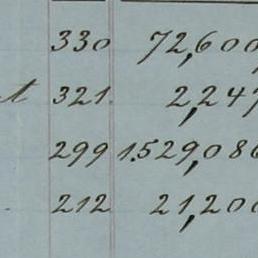 330 72,600
t 321 2,247
299 1.529,086
212 21,200